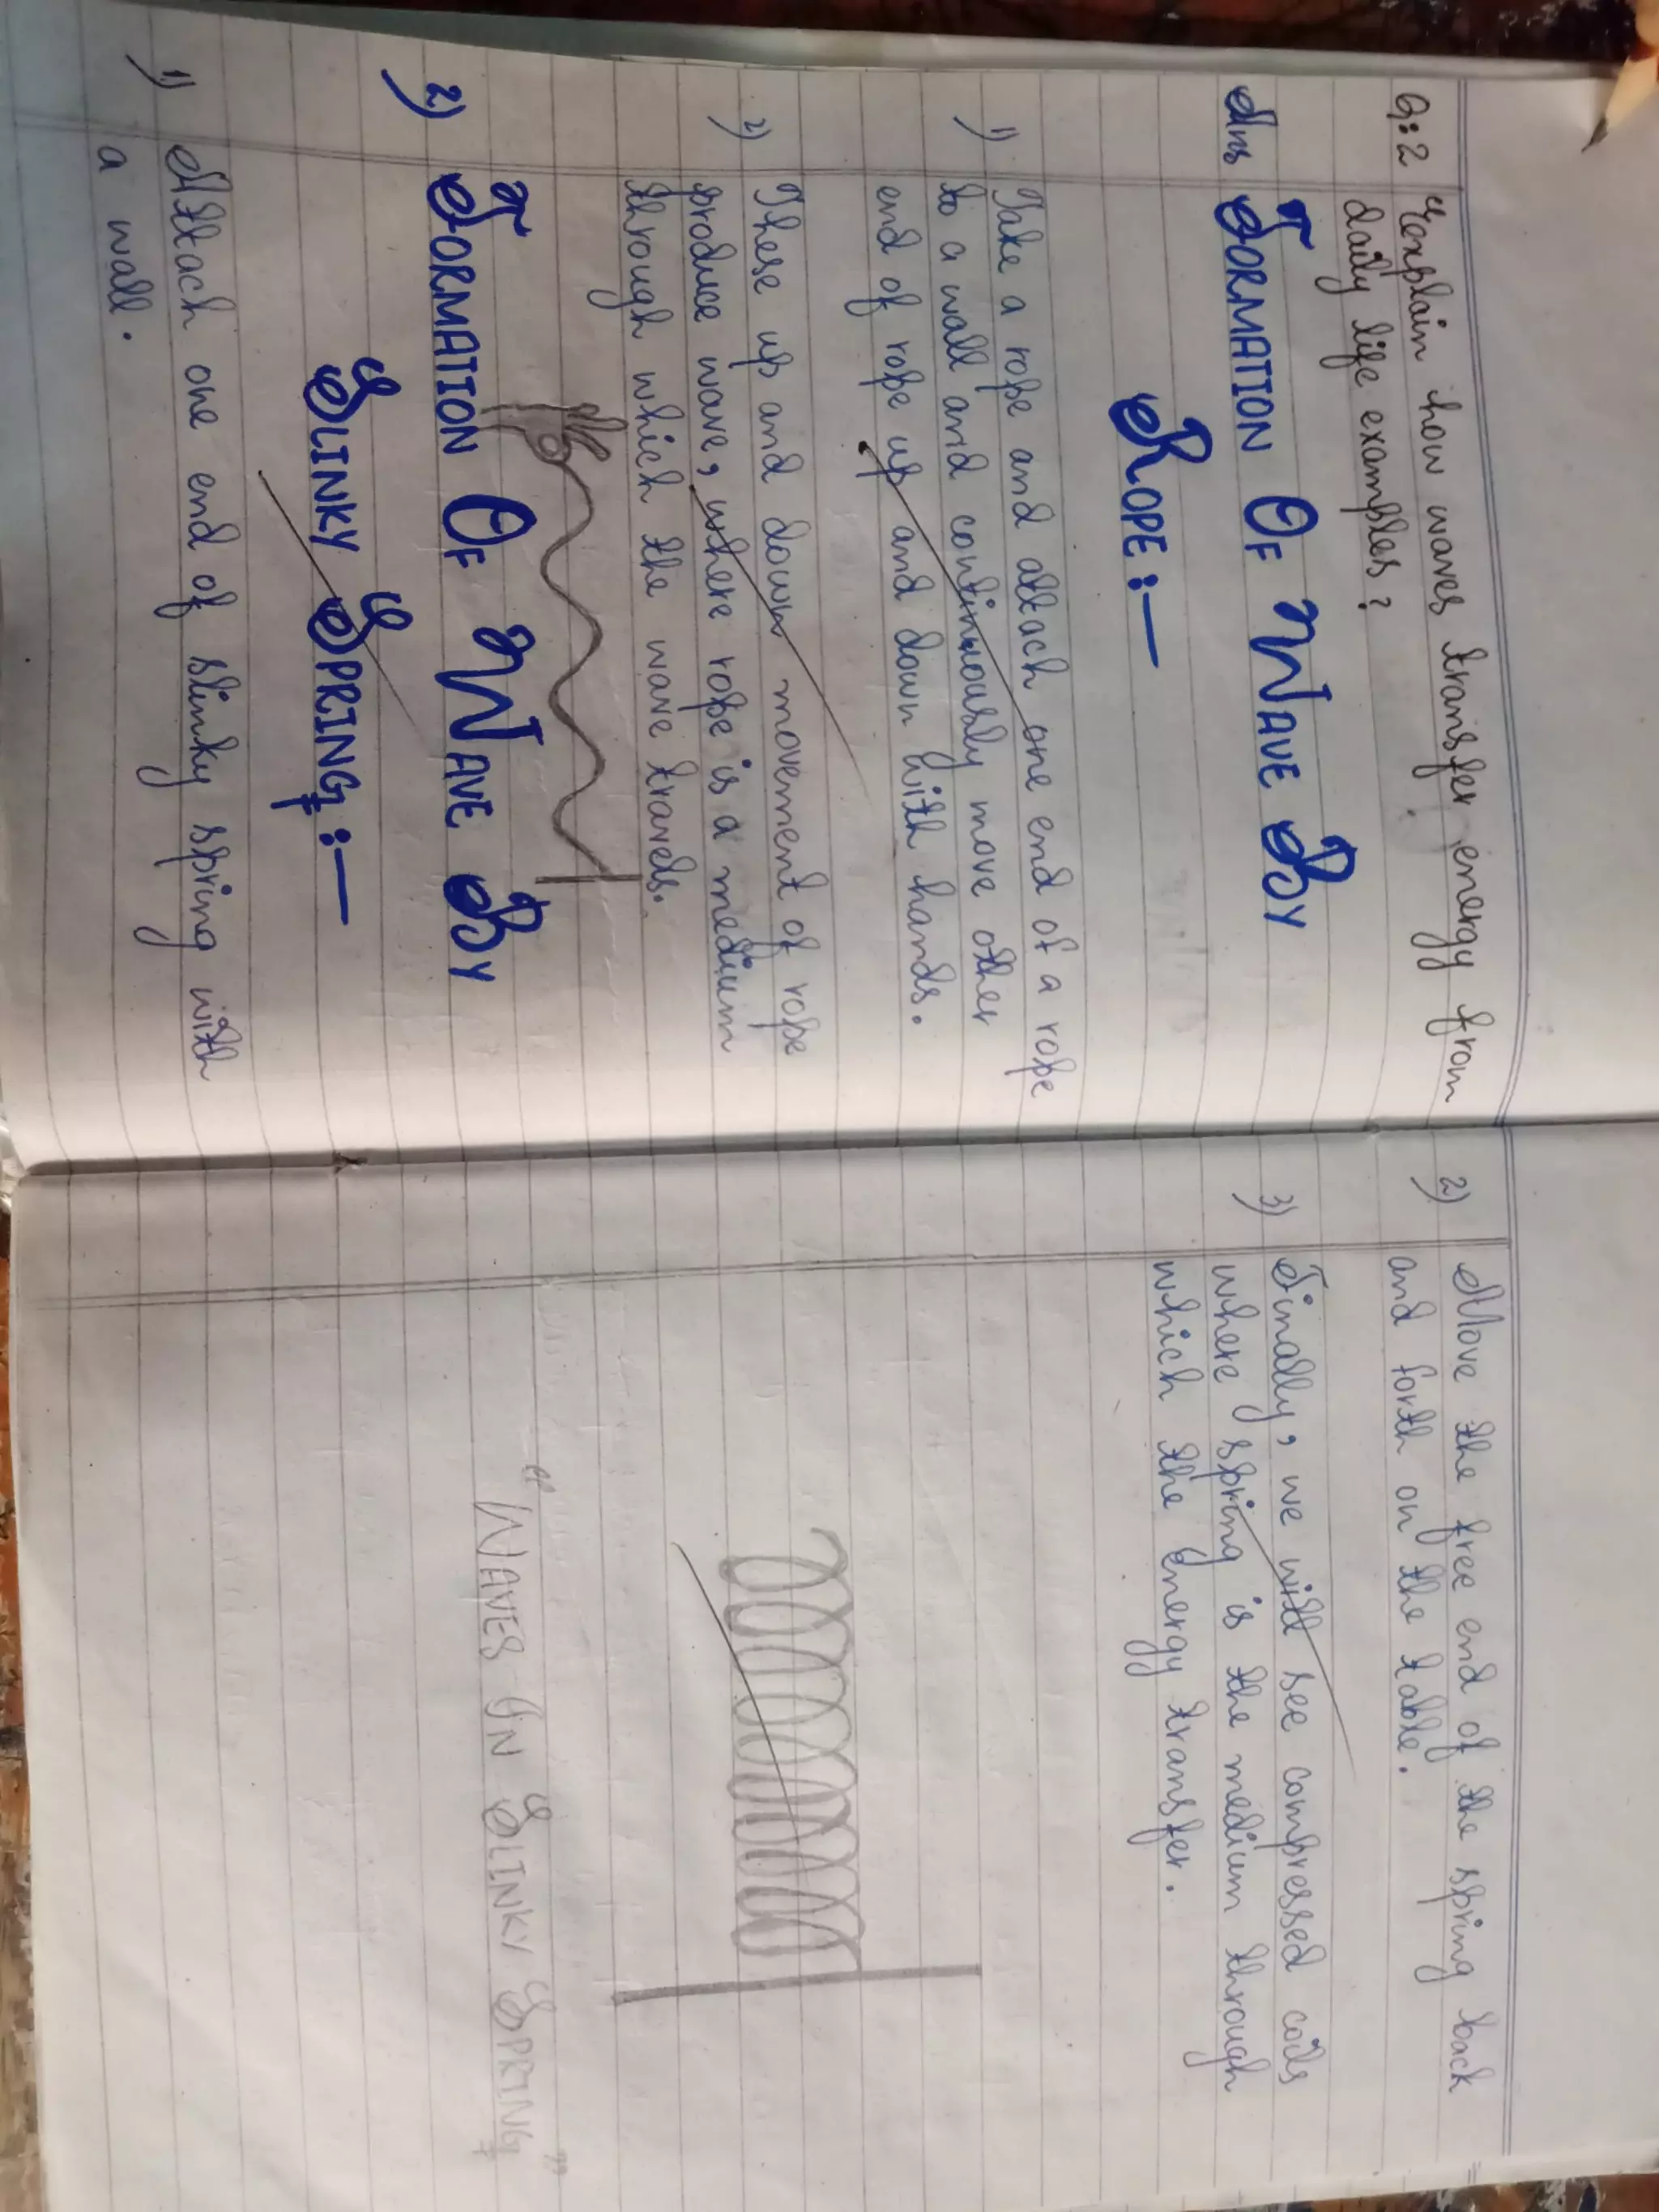 Q:2 Explain how waves transfer energy from
daily life examples?
Ans FORMATION OF WAVE BY
ROPE:—
1) Take a rope and attach one end of a rope
to a wall and continuously move other
end of rope up and down with hands.
2) These up and down movement of rope
produce wave, where rope is a medium
through which the wave travels.
2) FORMATION OF WAVE BY
SLINKY SPRING:—
1) Attach one end of slinky spring with
a wall.
2) Move the free end of the spring back
and forth on the table.
3) Finally, we will see compressed coils
where spring is the medium through
which the energy transfer.
"WAVES IN SLINKY SPRING"